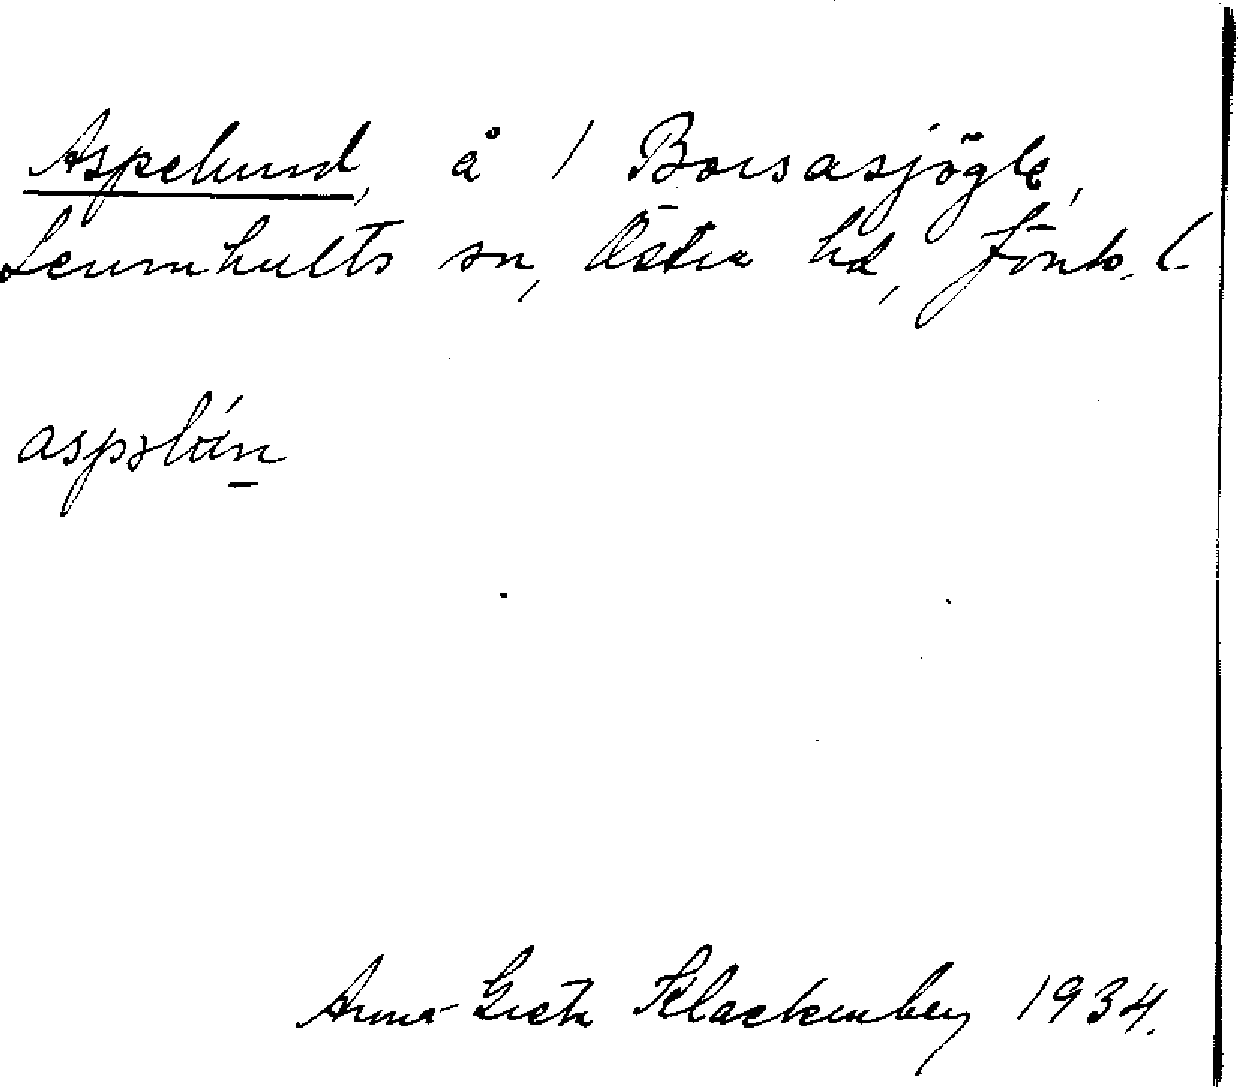 Aspelund, å 1 Borsasjögle,
Lemnhults sn, Östra hd, Jönk. l
aspəlún
Anna-Greta Klackenberg 1934.